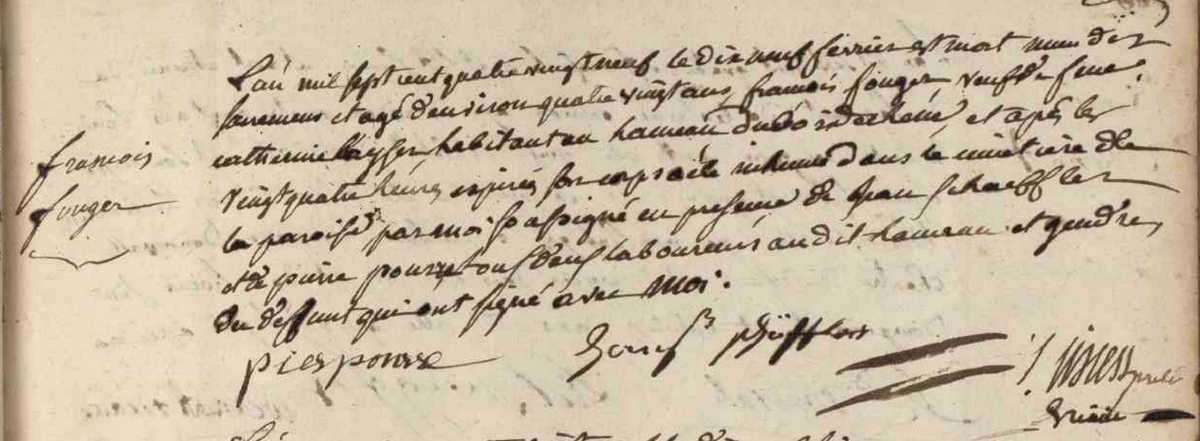 L'an mil sept cent quatre vingt neuf le dix neuf fevrier est mort muni des
sacremens et agé d'environ quatre vingt ans francois fouger veuf de feüe
catherine kayser, habitant au hameau du et après les
vingt quatre heures expirés son corps a été inhumé dans le cimetiere de
la paroisse par moi soussigné en presence de jean schaeffler
et de pierre pourre tous deux laboureurs au dit hameau et gendres
du deffunt qui ont signé avec moi.
francois
fouger
pier pourre